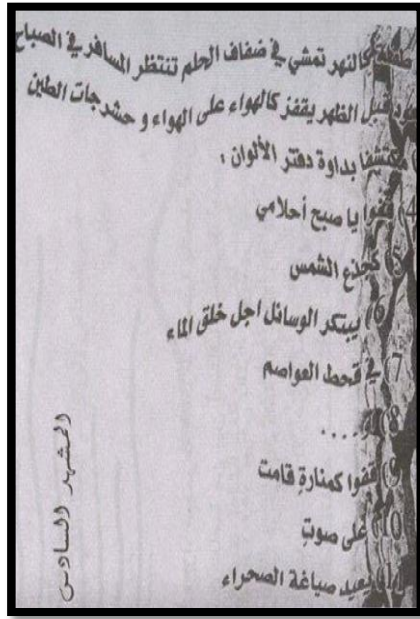 طفلة كالنهر تمشي في ضفاف الحلم تنتظر المسافر في الصباح
قبل الظهر يقفز كالهواء على الهواء و حشرجات الطين
مكتشفا بداوة دفتر الألوان :
4) قفوا يا صبح أحلامي
5) كجذع الشمس
6) يبتكر الوسائل اجل خلق الماء
7) في قحط العواصم
8) ....
9) قفوا كمنارةِ قامت
10) على صوتِ
11) يعيد صياغة الصحراء
المشهد السادس